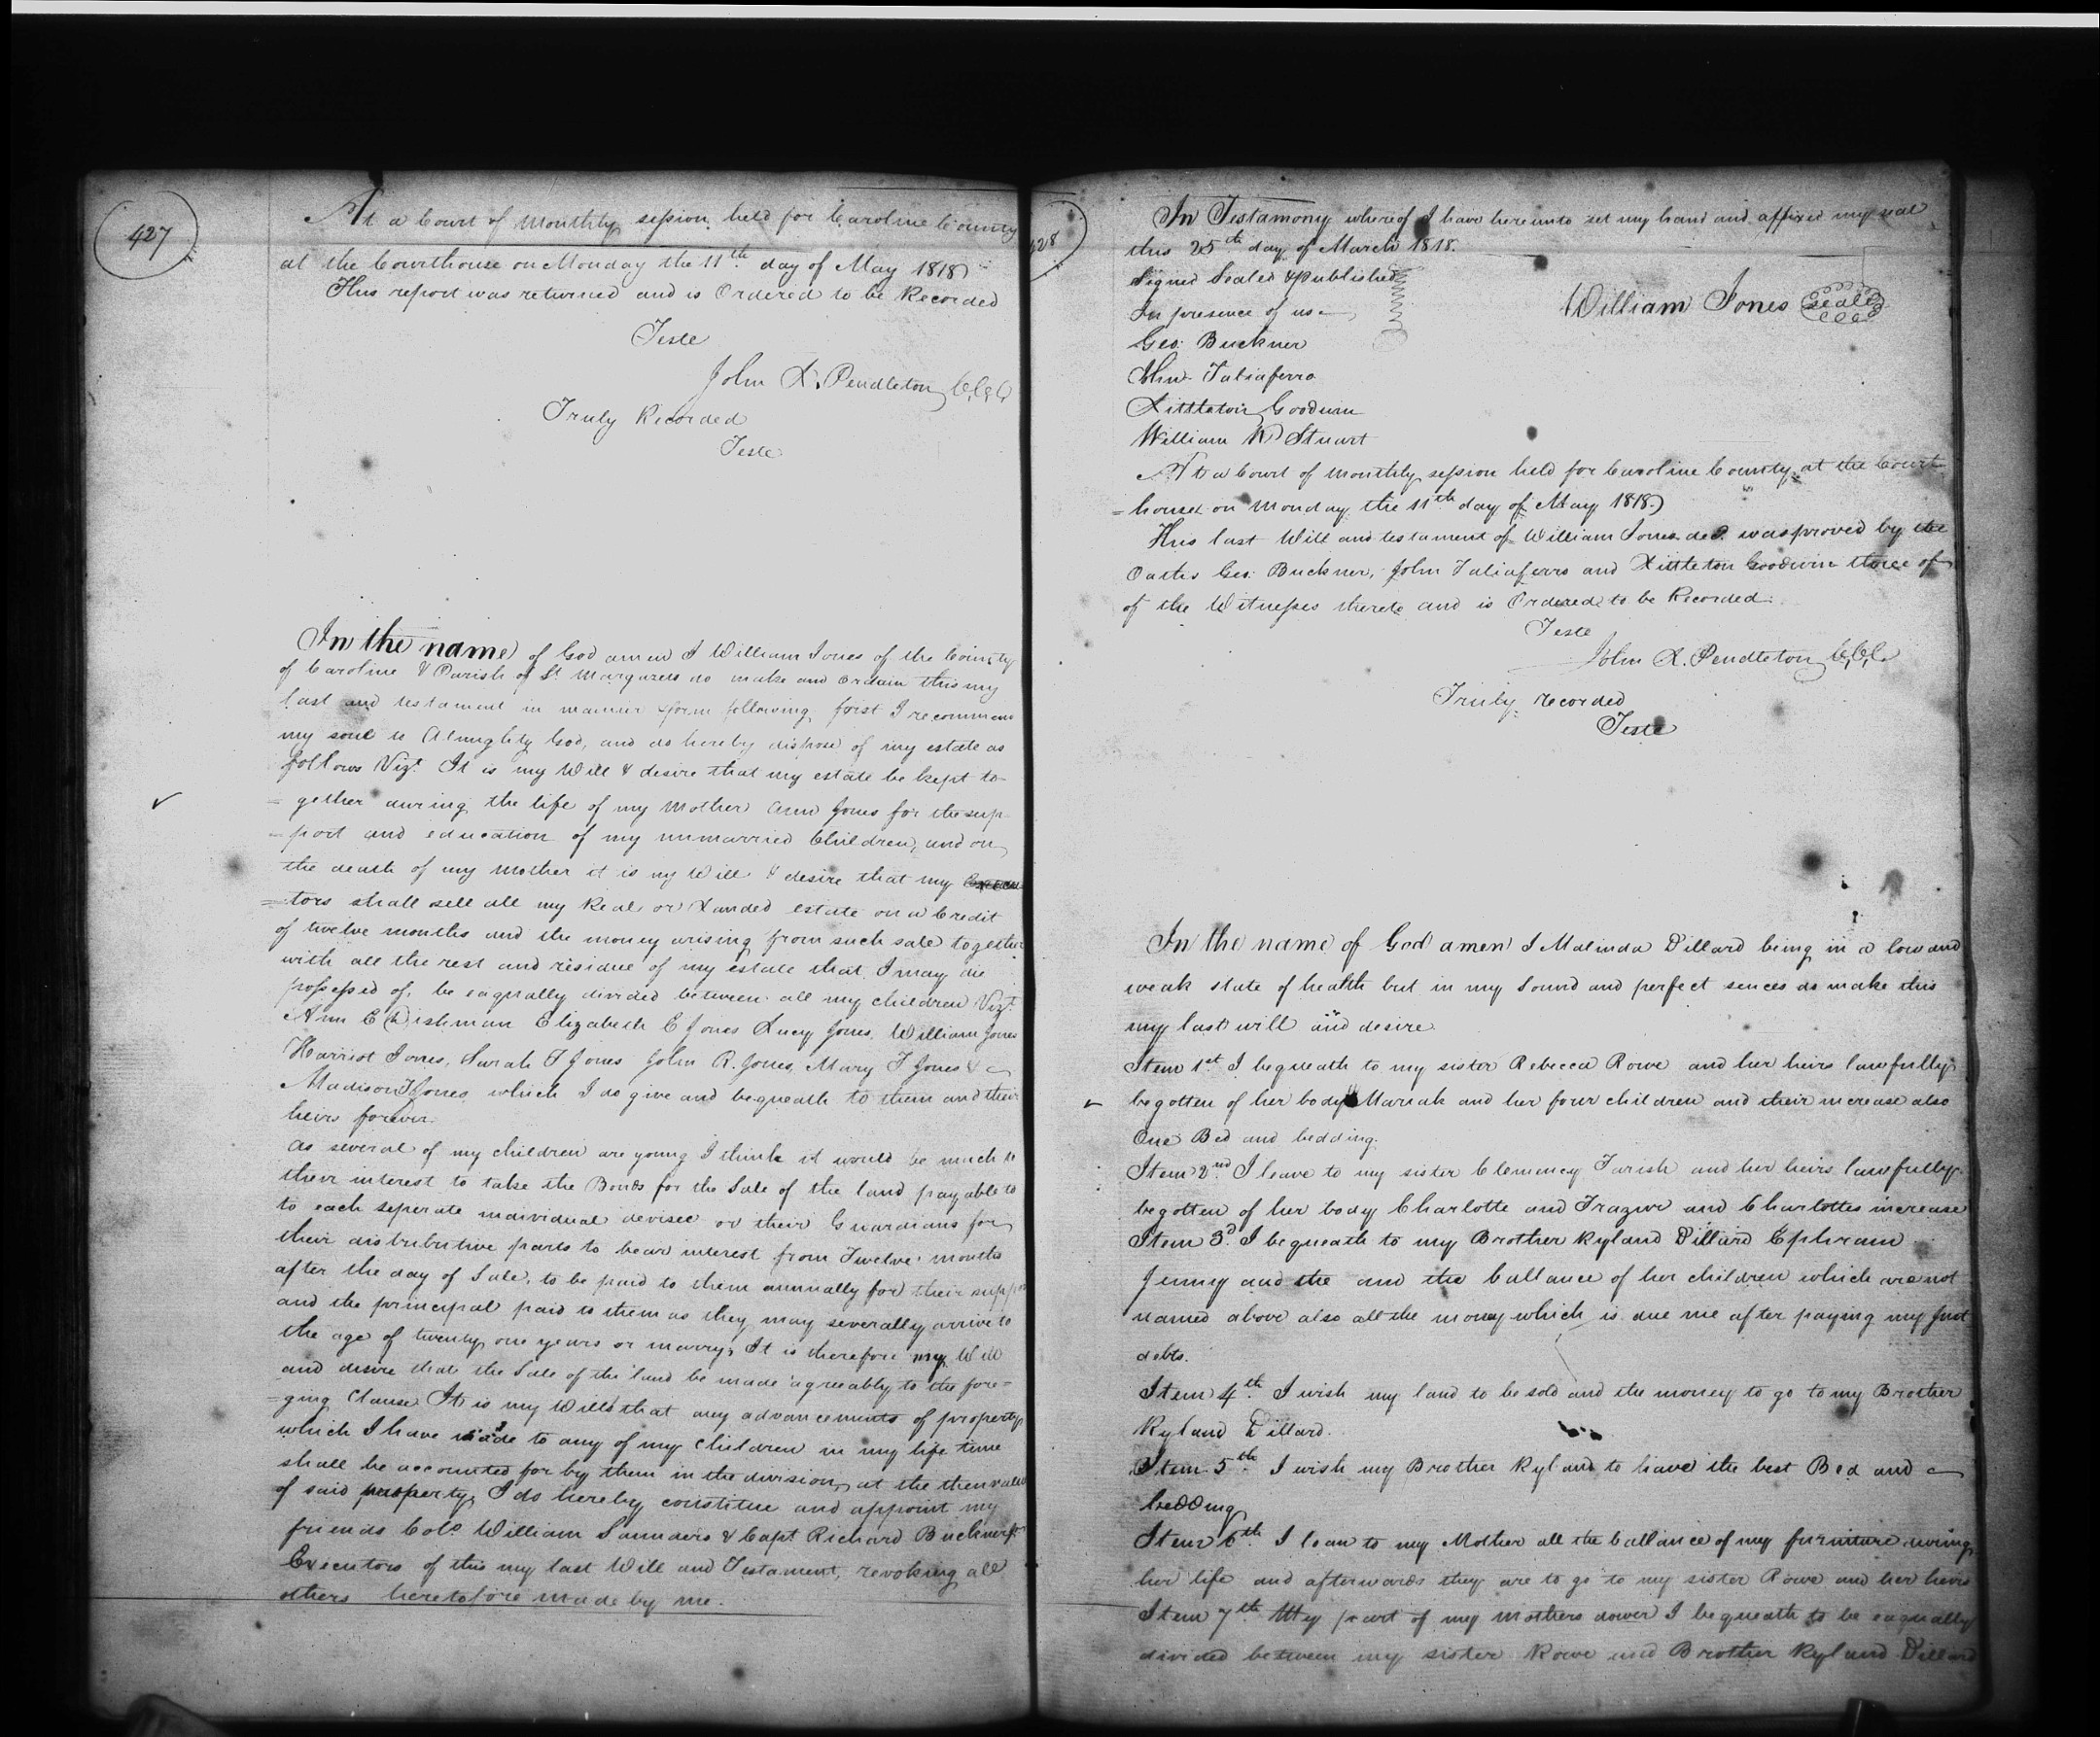 427
At a Court of Monthly session held for Caroline County
at the Courthouse on Monday the 11th day of May 1818
This report was returned and is Ordered to be Recorded
Teste
John L. Pendleton C.C.C
Truly Recorded
Teste
In the name of God amen I William Jones of the County
of Caroline & Parish of St Margarets do make and ordain this my
last and testament in manner & form following, first I recommend
my soul to Almighty God, and do hereby dispose of my estate as
follows Vizt. It is my Will & desire that my estate be kept to-
=gether during the life of my Mother Ann Jones for the sup-
=port and education of my unmarried Children, and on
the death of my Mother it is my Will & desire that my Execu
=tors shall sell all my Real or Landed estate on a Credit
of twelve months and the money arising from such sale together
with all the rest and residue of my estate that I may die
possessed of, be eaqually divided between all my children Vizt.
Ann E Dishman Elizabeth E Jones Lucy Jones, William Jones
Harriot Jones, Sarah T Jones John R. Jones, Mary T Jones &
Madison T Jones which I do give and bequeath to them and their
heirs forever.
As several of my children are young I think it would be much to
their interest to take the Bonds for the Sale of the land payable to
to each seperate individual devisee or their Guardians for
their distributive parts to bear interest from Twelve months
after the day of Sale, to be paid to them annually for their suppo
and the principal paid to them as they may severally arrive to
the age of twenty one years or marry, It is therefore my Will
and desire that the Sale of the land be made agreeably to the fore=
=ging Clause It is my Will that any advancements of property
which I have made to any of my Children in my life time
shall be accounted for by them in the division, at the then value
of said property, I do hereby constitue and appoint my
friends Colo. William Saunders & Capt Richard Buckner Jr
Executors of this my last Will and Testament, revoking all
others heretofore made by me.
428
In Testamony whereof I have hereunto set my hand and affixed my seal
this 25th day of March 1818.
Signed Sealed & Published
In presence of us
William Jones seal
Geo: Buckner
John Taliaferro
Littleton Goodwin
William W Stuart
At a Court of Monthly session held for Caroline County at the Court
=house on Monday the 11th day of May 1818
This last Will and testament of William Jones decd. was proved by the
Oaths Geo: Buckner, John Taliaferro and Littleton Goodwin three of
of the Witnesses thereto and is Ordered to be Recorded.
Teste
John L. Pendleton C.C.C.
Truly recorded
Teste
In the name of God amen I Malinda Dillard being in a low and
weak state of health but in my Sound and perfect sences do make this
my last will and desire
Item 1st I bequeath to my sister Rebecca Rowe and her heirs lawfully
begotten of her body Mariah and her four children and their increase also
One Bed and bedding.
Item 2nd I leave to my sister Clemency Tarish and her heirs lawfully
begotten of her body Charlotte and Frazier and Charlottes increase
Item 3d. I bequeath to my Brother Ryland Dillard Ephraim
Jenny and the and the ballance of her children which are not
named above also all the money which is due me after paying my just
debts.
Item 4th I wish my land to be sold and the money to go to my Brother
Ryland Dillard.
Item 5th I wish my Brother Ryland to have the best Bed and
bedding
Item 6th. I loan to my Mother all the ballance of my furniture during
her life and afterwards they are to go to my sister Rowe and her heirs
Item 7th My part of my Mothers dower I bequeath to be eaqually
divided between my sister Rowe and Brother Ryland Dillard